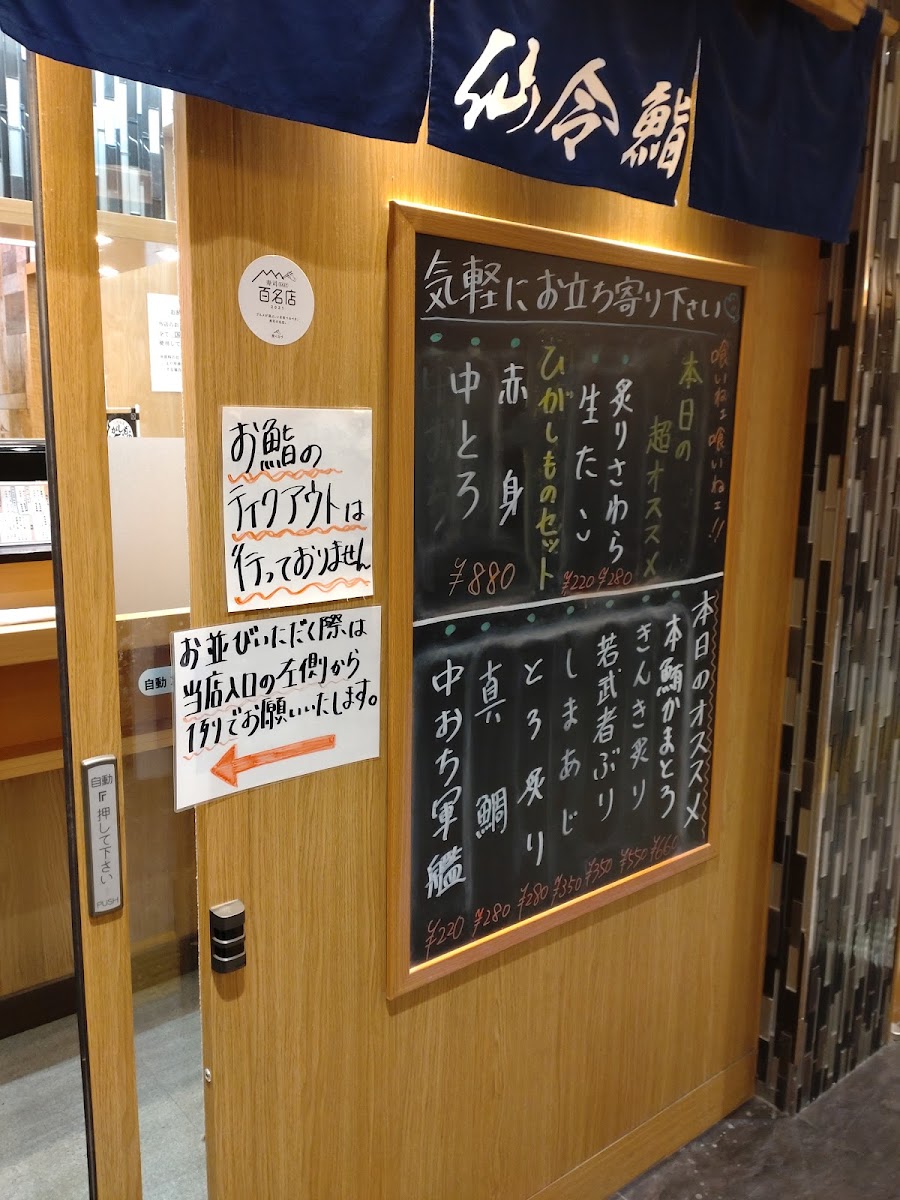 仙令鮨
気軽にお立ち寄り下さい
喰いねェ喰いねェ!!
本日の
超オススメ
炙りさわら ¥280
生たこ ¥220
ひがしものセット
赤身
中とろ
¥880
本日のオススメ
本鮪かまとろ ¥660
きんき炙り ¥550
若武者ぶり ¥350
しまあじ ¥350
とろ炙り ¥280
真鯛 ¥280
中おち軍艦 ¥220
百名店
2021
お鮨の
テイクアウトは
行っておりません
お並びいただく際は
当店入口の左側から
1列でお願いいたします。
自動
自動
押して下さい
PUSH